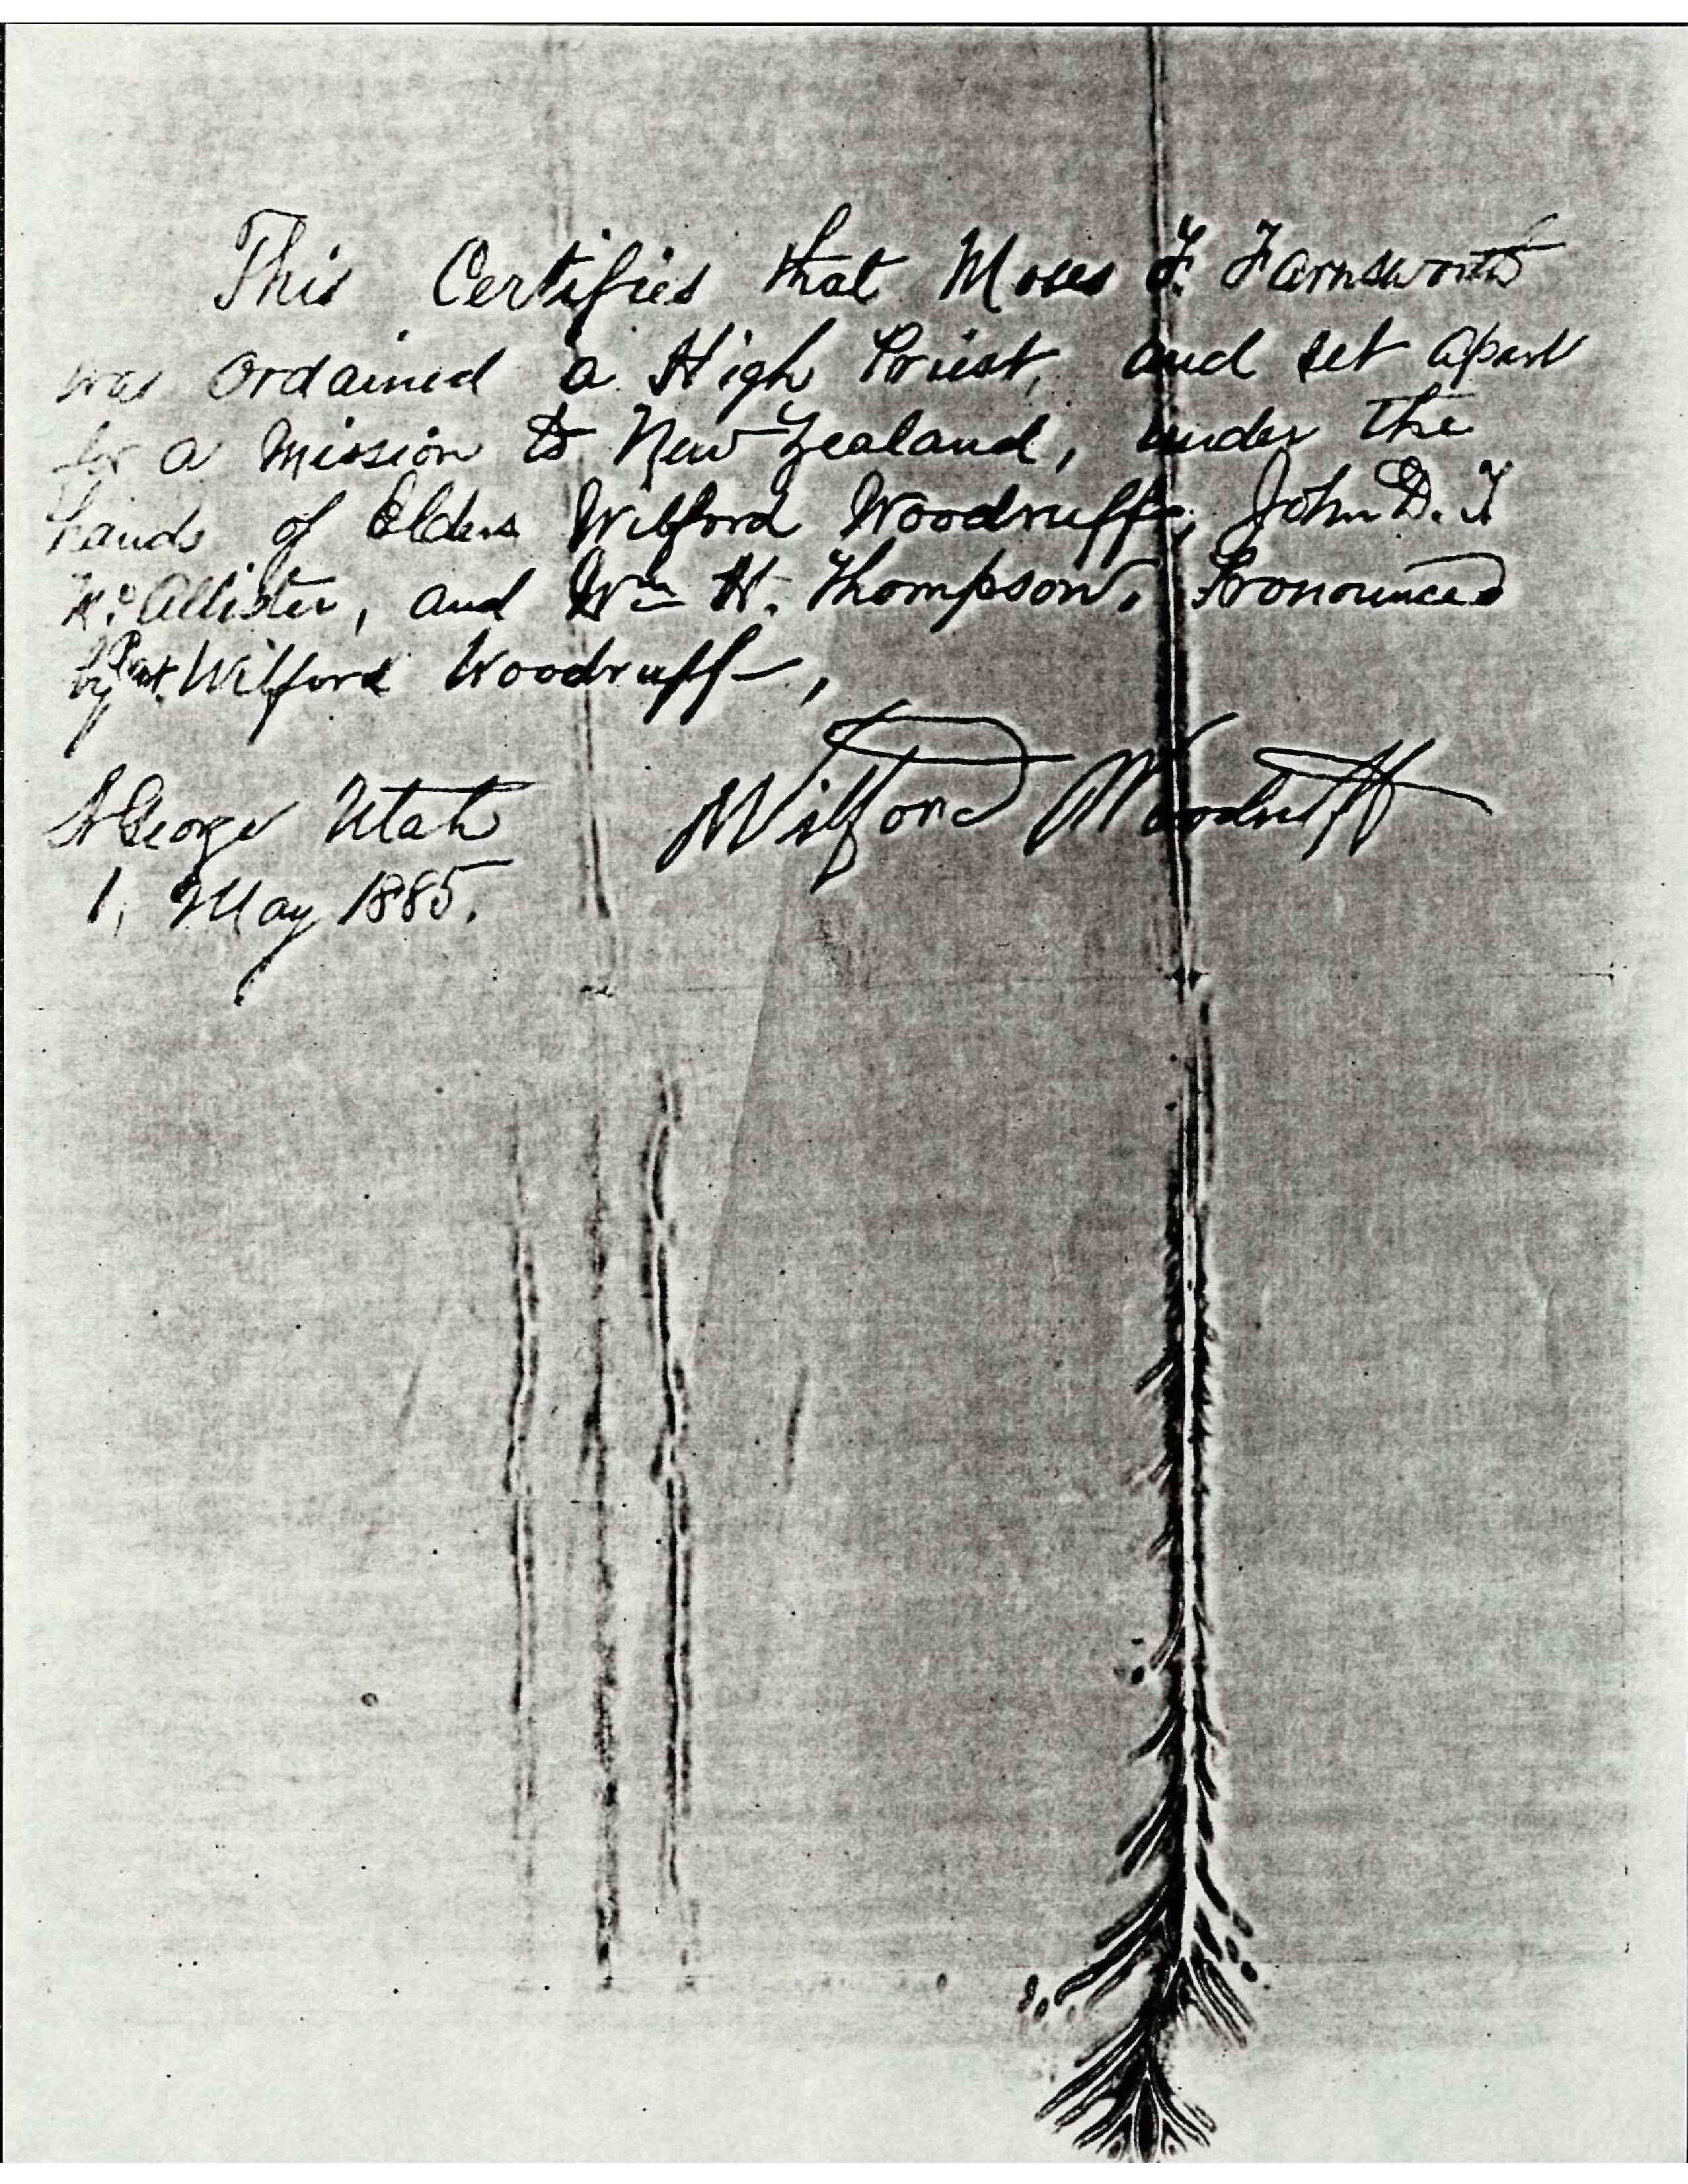 This Certifies that Moses F. Farnsworth
was Ordained a High Priest, and set apart
for a Mission to New Zealand, under the
hands of Elders Wilford Woodruff, John D. T
McAllister, and Wm H. Thompson. Pronounced
by Wilford Woodruff,
St George Utah Wilford Woodruff
1, May 1885.